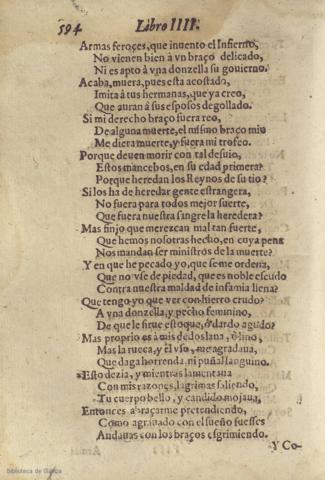 594 Libro IIII.
Armas feroçes, que inuento el Infierno,
No vienen bien à vn braço delicado,
Ni es apto à vna donzella su gouierno.
Acaba, muera, pues esta acostado,
Imita à tus hermanas, que ya creo,
Que auran à sus esposos degollado.
Si mi derecho braço fuera reo,
De alguna muerte, el mismo braço mio
Me diera muerte, y fuera mi trofeo.
Porque deuen morir con tal desuio,
Estos mancebos, en su edad primera?
Porque heredan los Reynos de su tio?
Si los ha de heredar gente estrangera,
No fuera para todos mejor suerte,
Que fuera nuestra sangre la heredera?
Mas finjo que merezcan mal tan fuerte,
Que hemos nosotras hecho, en cuya pena
Nos mandan ser ministros de la muerte?
Y en que he pecado yo, que se me ordena,
Que no vse de piedad, que es noble escudo
Contra nuestra maldad de infamia llena?
Que tengo yo que ver con hierro crudo?
A vna donzella, y pecho feminino,
De que le sirue estoque, ò dardo agudo?
Mas proprio es à mis dedos lana, ò lino,
Mas la rueca, y el vso, me agradaua,
Que daga horrenda ni puñal sanguino.
Esto dezia, y mientras lamentaua
Con mis razones, lagrimas saliendo,
Tu cuerpo bello, y candido mojaua,
Entonces abraçarme pretendiendo,
Como agrauado con el sueño fuesses
Andauas con los braços esgrimiendo.
Y Co-
Biblioteca de Galicia